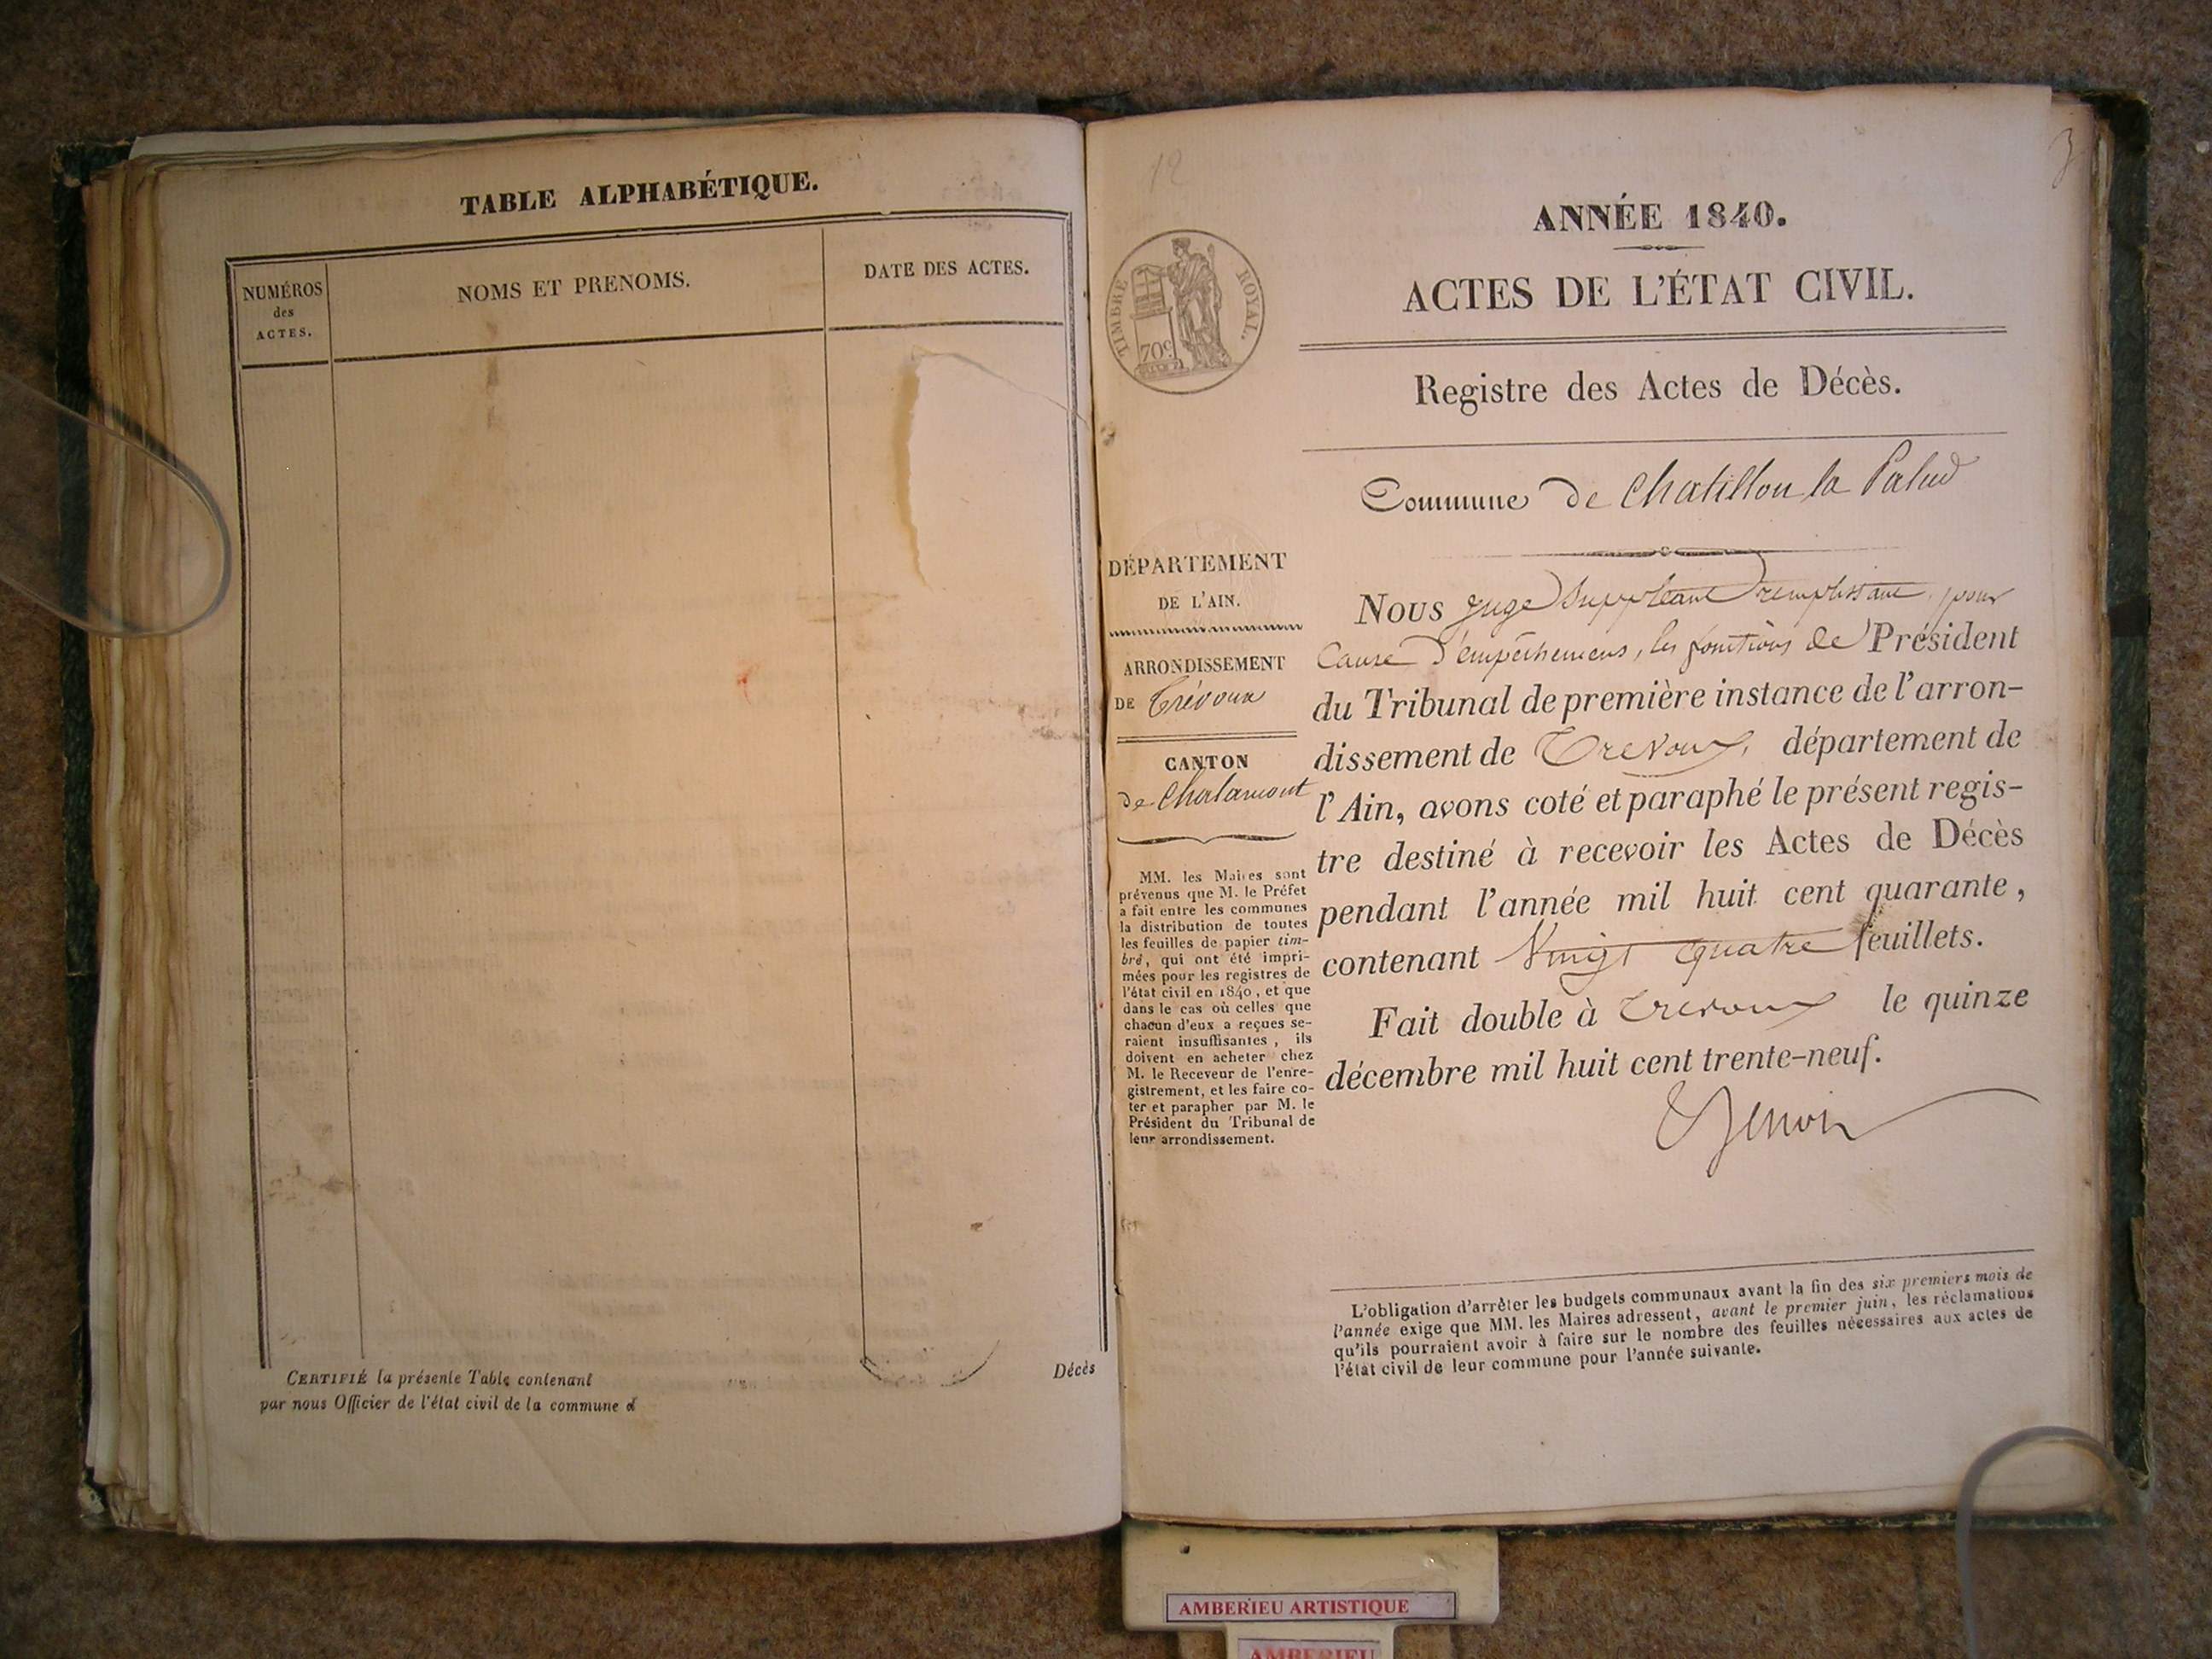 TABLE ALPHABÉTIQUE.
NUMÉROS
des
ACTES.
NOMS ET PRENOMS.
DATE DES ACTES.
CERTIFIÉ la présente Table contenant
Décès
par nous Officier de l'état civil de la commune d
12
3
TIMBRE ROYAL.
70c
ANNÉE 1840.
ACTES DE L'ÉTAT CIVIL.
Registre des Actes de Décès.
Commune de Chatillon la Palud
DÉPARTEMENT
DE L'AIN.
ARRONDISSEMENT
DE Trévoux
CANTON
de Chalamont
MM. les Maires sont
prévenus que M. le Préfet
a fait entre les communes
la distribution de toutes
les feuilles de papier tim-
bré, qui ont été impri-
mées pour les registres de
l'état civil en 1840, et que
dans le cas où celles que
chacun d'eux a reçues se-
raient insuffisantes, ils
doivent en acheter chez
M. le Receveur de l'enre-
gistrement, et les faire co-
ter et parapher par M. le
Président du Tribunal de
leur arrondissement.
Nous Juge Suppléant remplissant, pour
Cause d'empêchemens, les fonctions de Président
du Tribunal de première instance de l'arron-
dissement de Trevoux, département de
l'Ain, avons coté et paraphé le présent regis-
tre destiné à recevoir les Actes de Décès
pendant l'année mil huit cent quarante,
contenant Vingt quatre feuillets.
Fait double à Trevoux le quinze
décembre mil huit cent trente-neuf.
L'obligation d'arrêter les budgets communaux avant la fin des six premiers mois de
l'année exige que MM. les Maires adressent, avant le premier juin, les réclamations
qu'ils pourraient avoir à faire sur le nombre des feuilles nécessaires aux actes de
l'état civil de leur commune pour l'année suivante.
AMBERIEU ARTISTIQUE
AMBERIEU